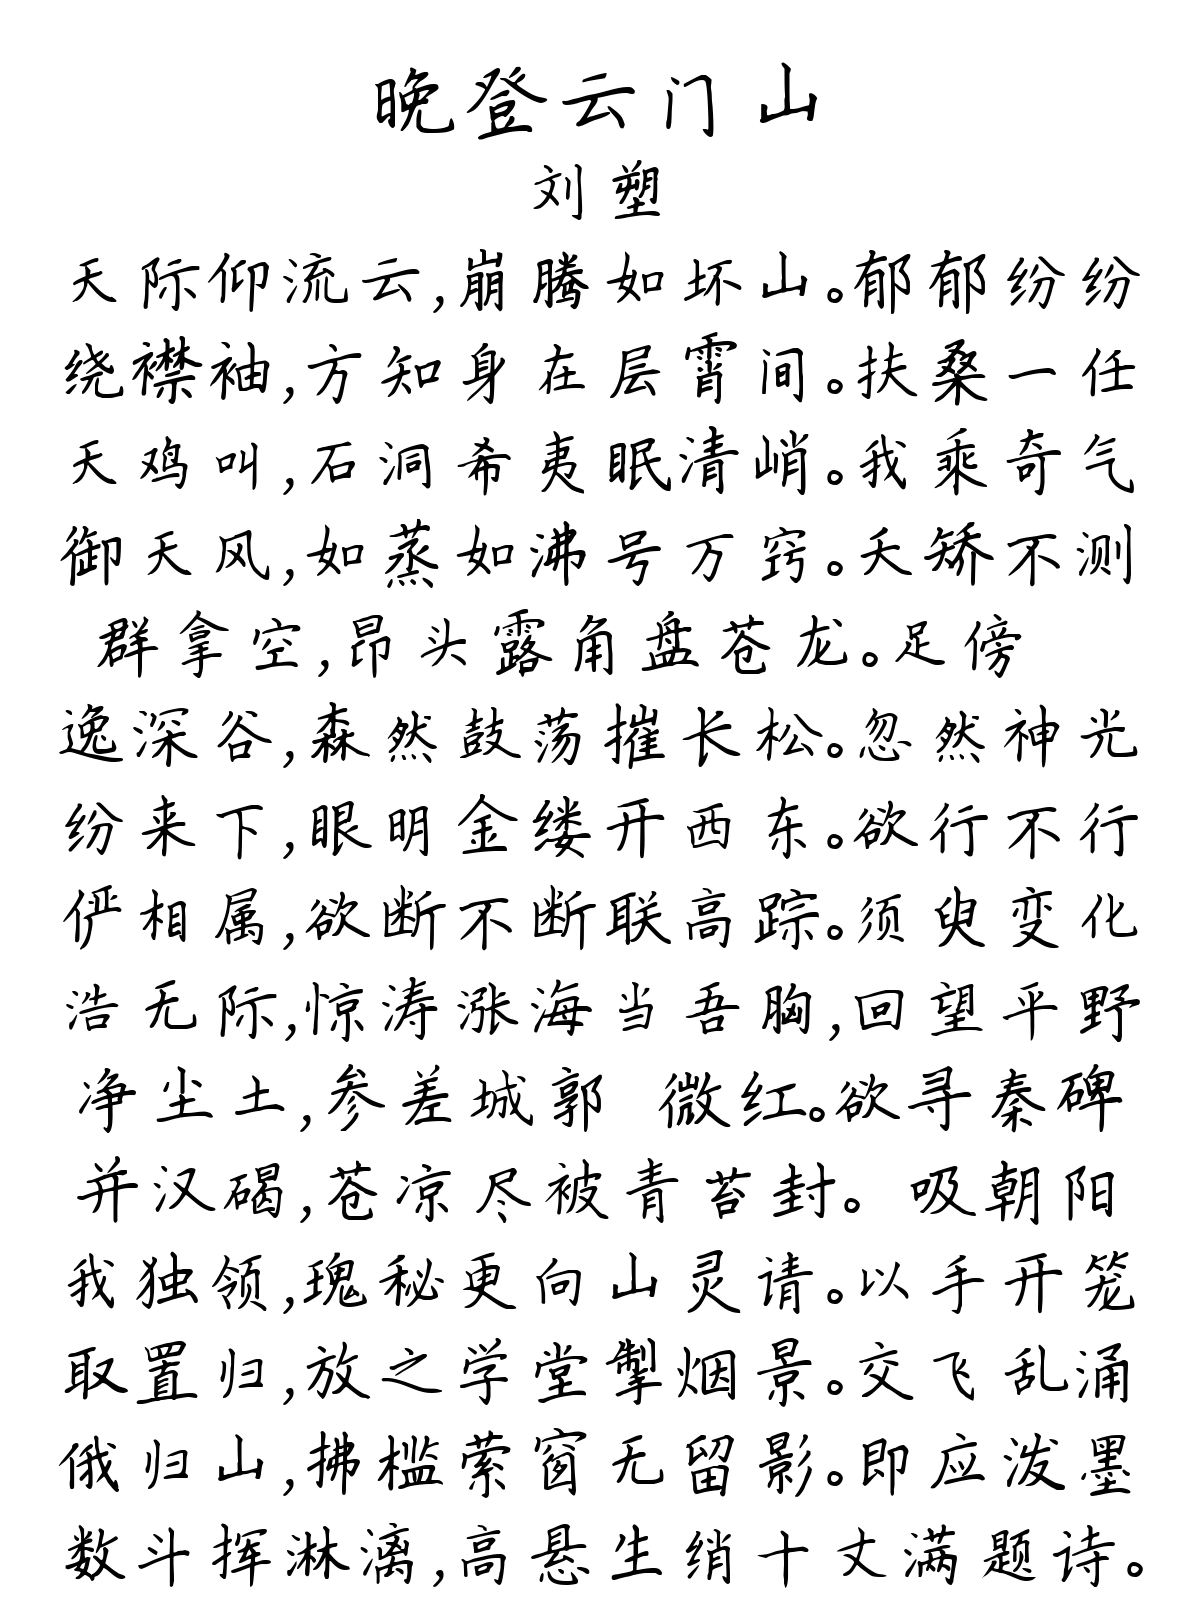 晚登云门山
刘塑
天际仰流云,崩腾如坏山。郁郁纷纷
绕襟袖,方知身在层霄间。扶桑一任
天鸡叫,石洞希夷眠清峭。我乘奇气
御天风,如蒸如沸号万窍。夭矫不测
群拿空,昂头露角盘苍龙。足傍
逸深谷,森然鼓荡摧长松。忽然神光
纷来下,眼明金缕开西东。欲行不行
俨相属,欲断不断联高踪。须臾变化
浩无际,惊涛涨海当吾胸,回望平野
净尘土,参差城郭 微红。欲寻秦碑
并汉碣,苍凉尽被青苔封。 吸朝阳
我独领,瑰秘更向山灵请。以手开笼
取置归,放之学堂掣烟景。交飞乱涌
俄归山,拂槛萦窗无留影。即应泼墨
数斗挥淋漓,高悬生绡十丈满题诗。